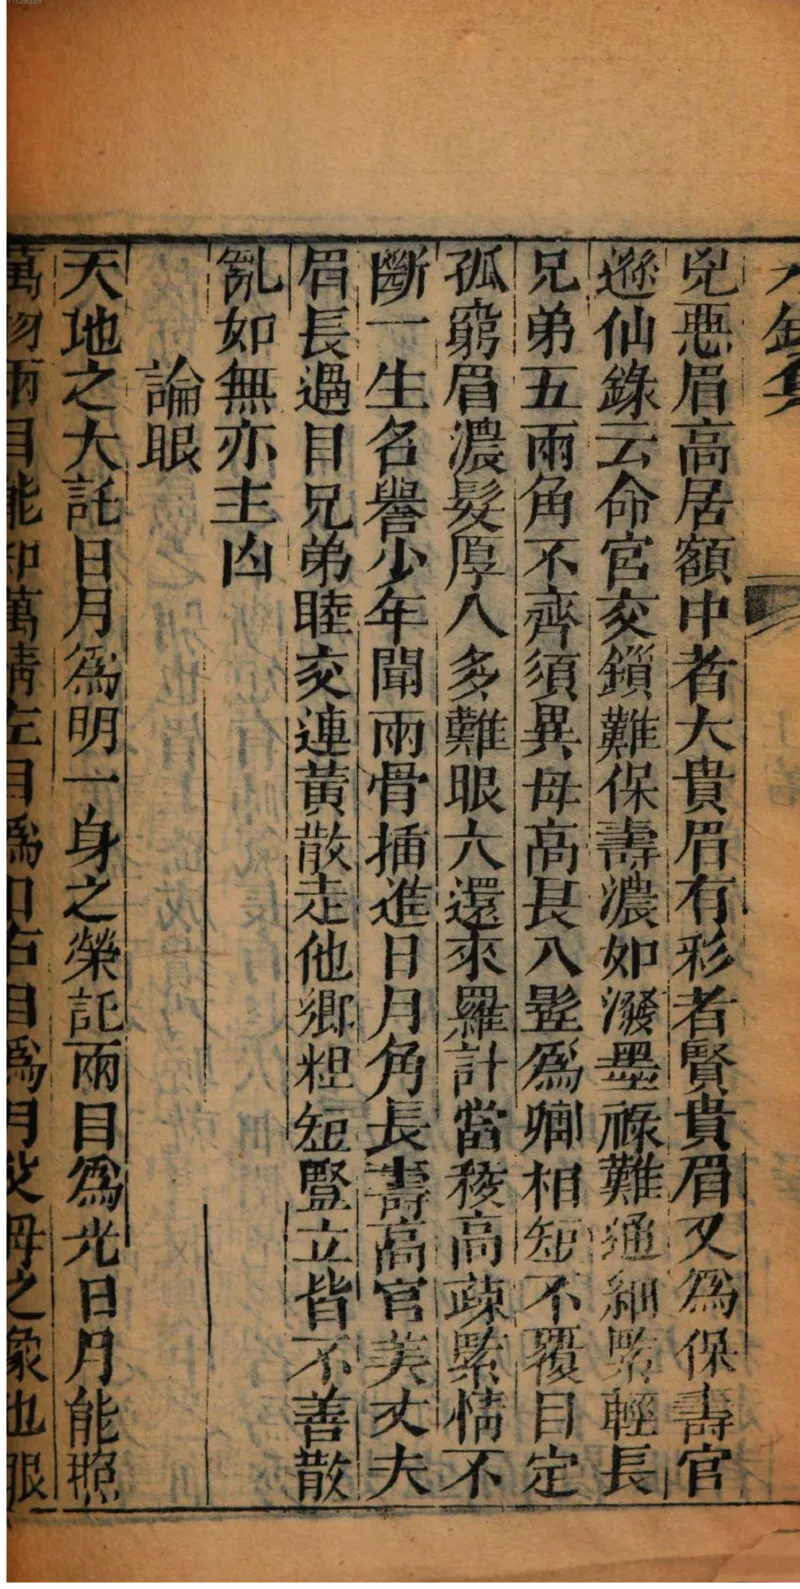 兇惡眉高居額中者大貴眉有彩者賢貴眉又爲保壽官
遯仙錄云命宮交鎖難保壽濃如潑墨祿難通細緊輕長
兄弟五兩角不齊須異母高長入髩爲卿相短不覆目定
孤窮眉濃髮厚人多難眼大還來羅計當稜高疎緊情不
斷一生名譽少年聞兩骨插進日月角長壽高官美丈夫
眉長過目兄弟睦交連黃散走他鄉粗短豎立皆不善散
亂如無亦主凶
論眼
天地之大託日月爲明一身之榮託兩目爲光日月能照
萬物兩目能知萬情左目爲日右目爲月父母之象也眼